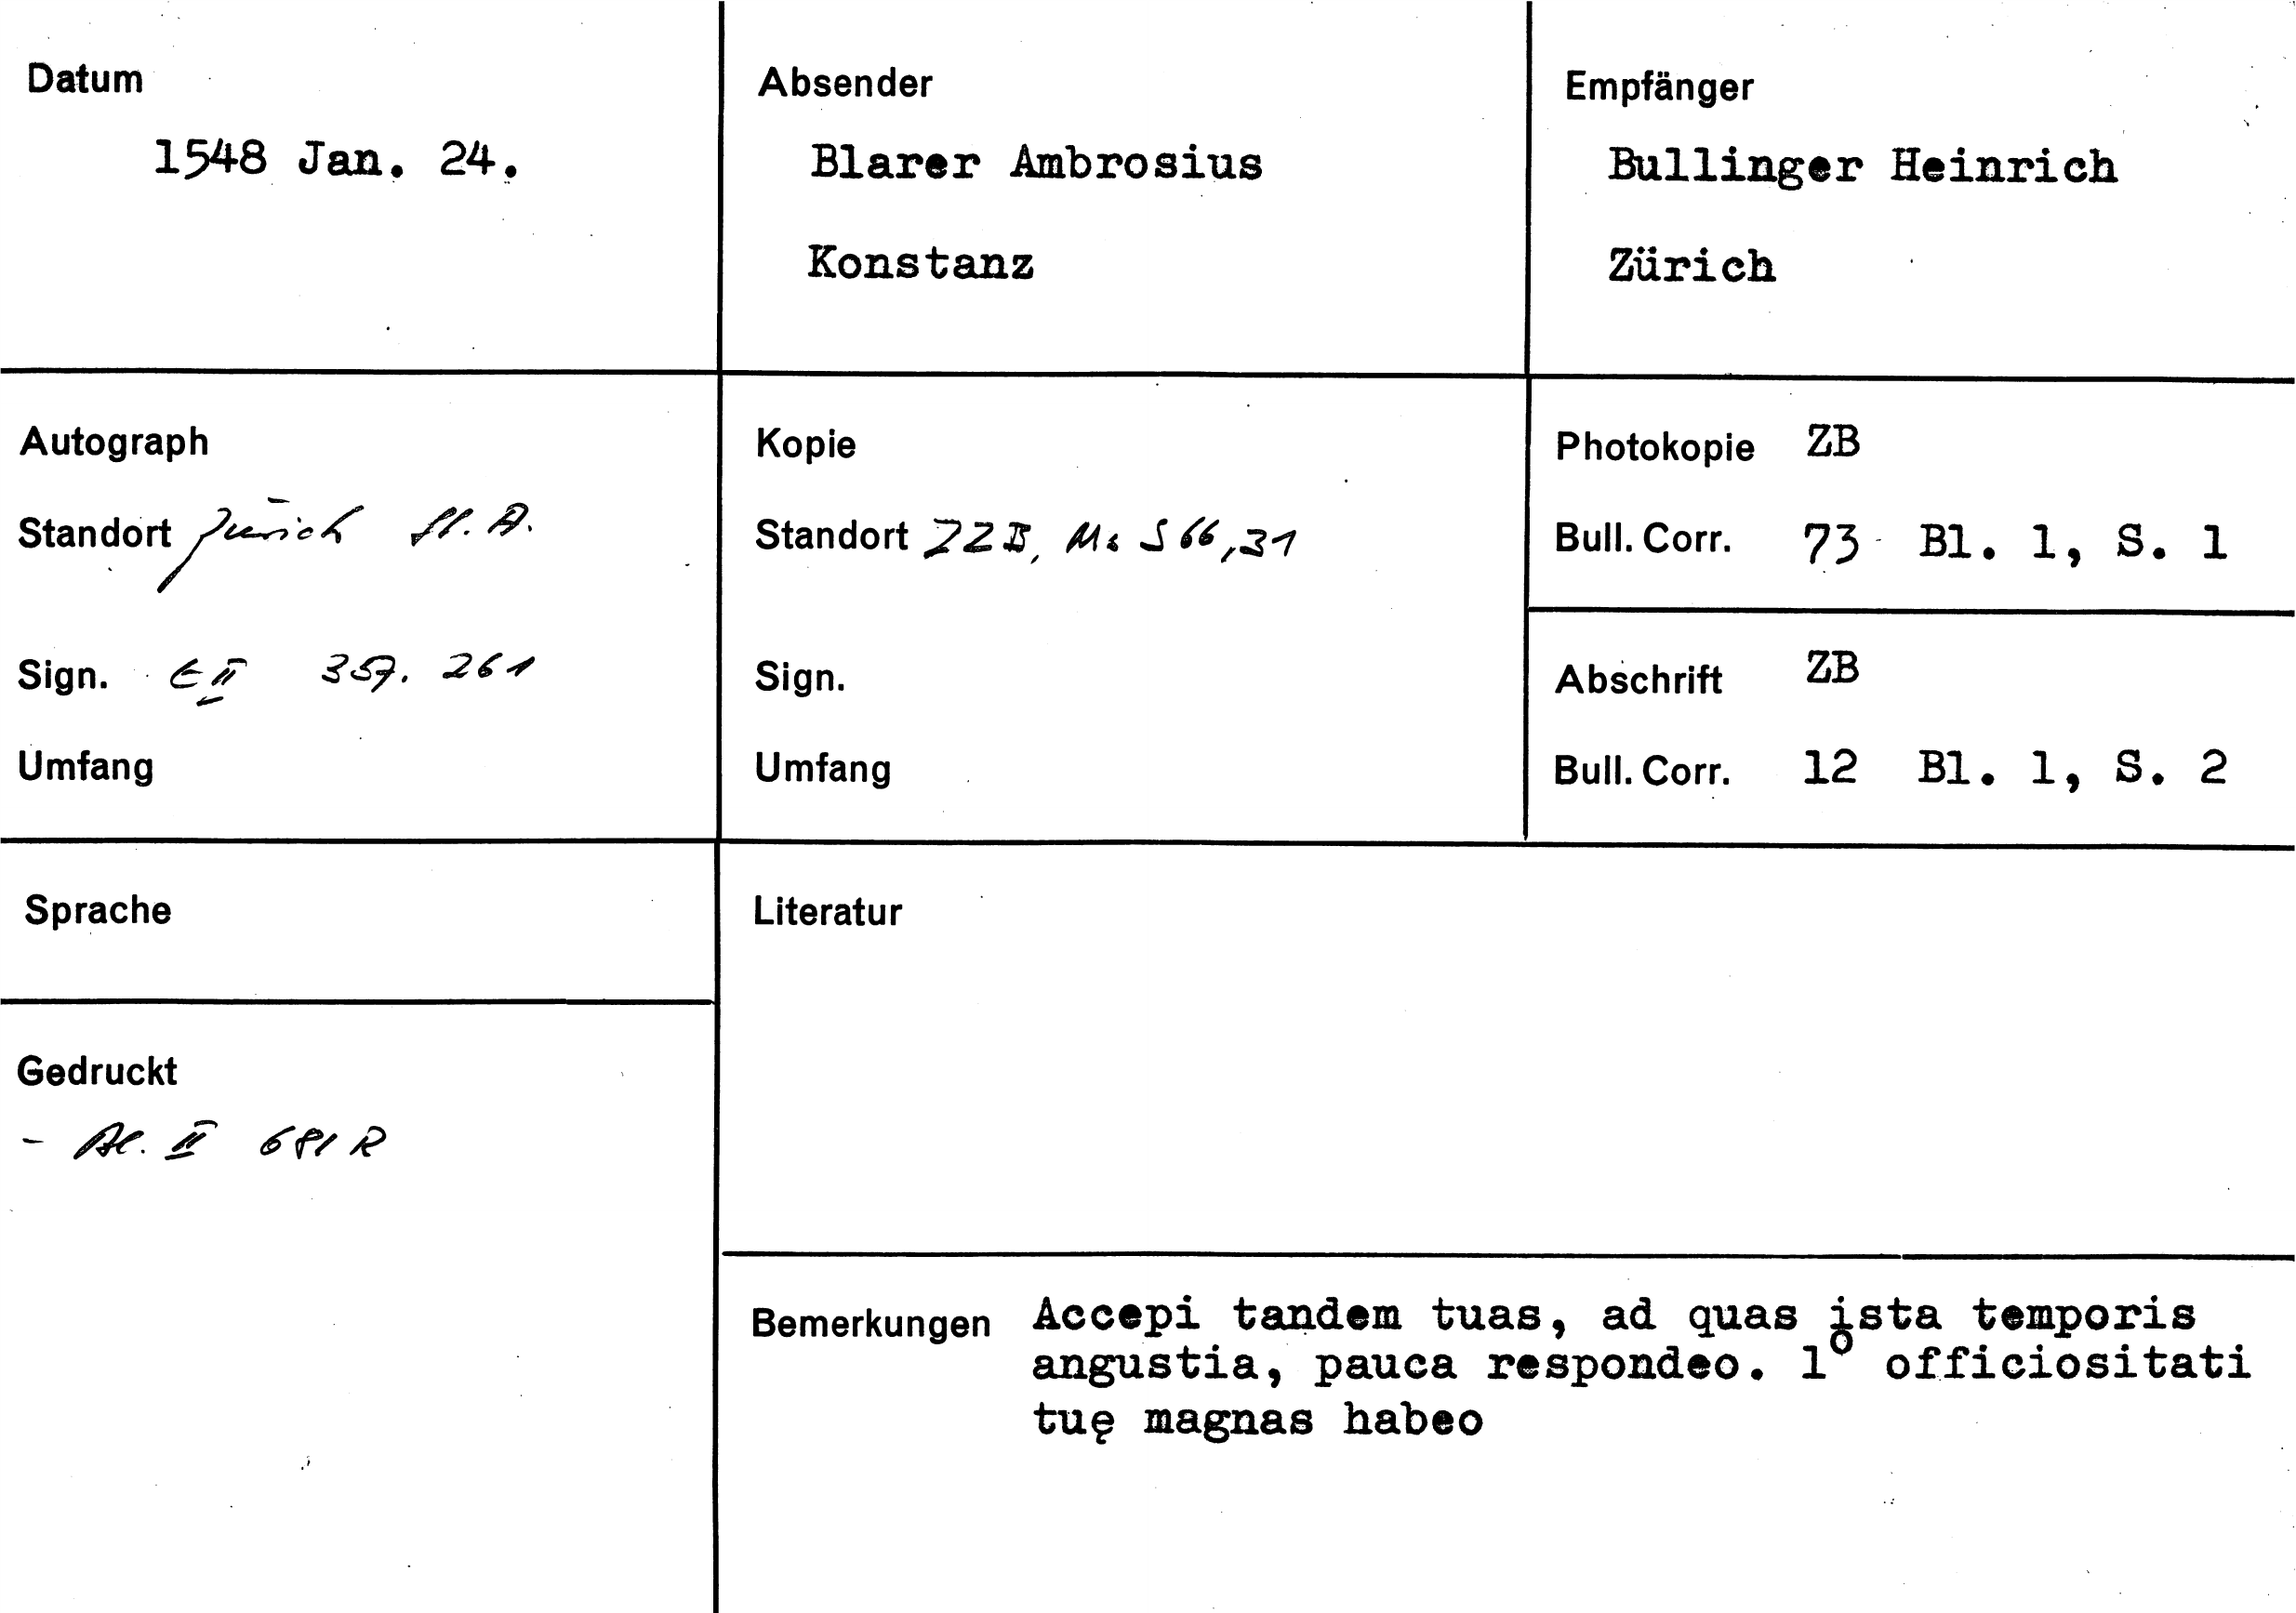 Datum
1548 Jan. 24.
Absender
Blarer Ambrosius
Konstanz
Empfänger
Bullinger Heinrich
Zürich
Autograph
Standort Zürich St. A.
Sign. E II 357. 261
Umfang
Kopie
Standort ZZB, Ms S 66,31
Sign.
Umfang
Photokopie ZB
Bull. Corr. 73 Bl. 1, S. 1
Abschrift ZB
Bull. Corr. 12 Bl. 1, S. 2
Sprache
Gedruckt
- Bl. II 681 R
Literatur
Bemerkungen Accepi tandem tuas, ad quas ista temporis
angustia, pauca respondeo. 1º officiositati
tuę magnas habeo